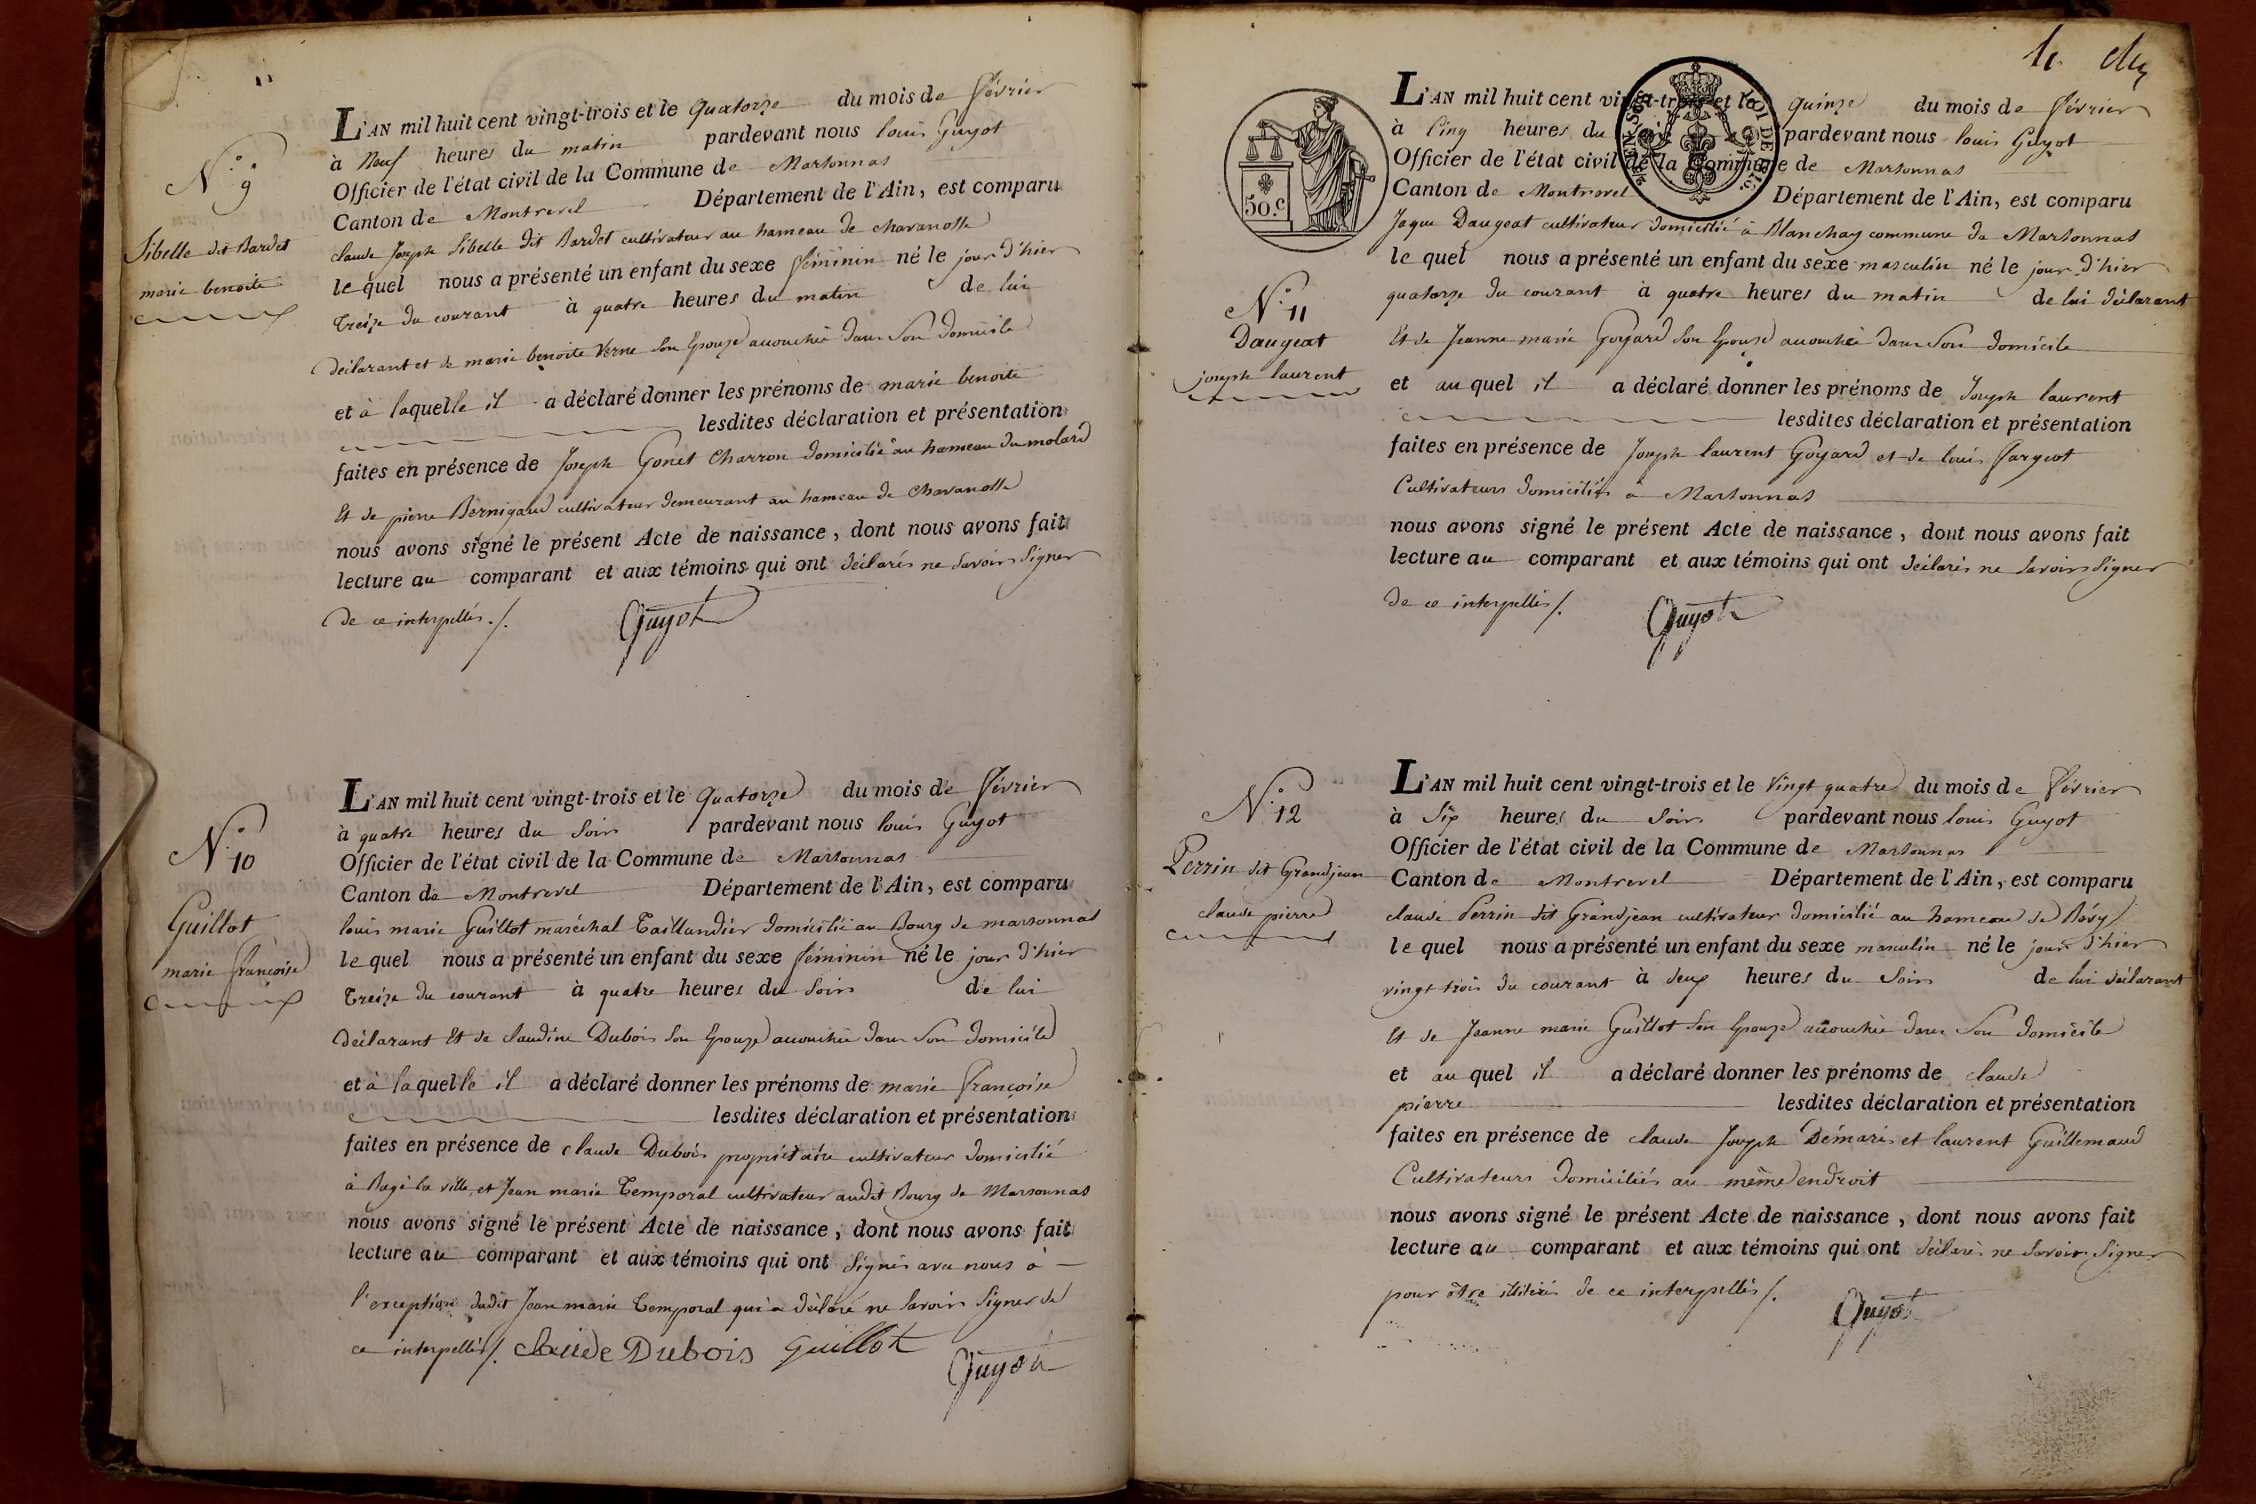 N.° 9
Sibelle dit Bardet
marie benoite
L'AN mil huit cent vingt-trois et le Quatorze du mois de février
à Neuf heures du matin pardevant nous louis Guyot
Officier de l'état civil de la Commune de Marsonnas
Canton de Montrevel Département de l'Ain, est comparu
claude Joseph Sibelle dit Bardet cultivateur au hameau de chavanosse
le quel nous a présenté un enfant du sexe féminin né le jour d'hier
treize du courant à quatre heures du matin de lui
déclarant et de marie benoite Verne son Epouze accouchée dans Son domicile
et à laquelle il a déclaré donner les prénoms de marie benoite
lesdites déclaration et présentation
faites en présence de Joseph Gonet Charron domicilié au hameau du molard
Et de pierre Bernigaud cultivateur demeurant au hameau de Chavanosse
nous avons signé le présent Acte de naissance, dont nous avons fait
lecture au comparant et aux témoins qui ont déclarés ne savoir Signer
de ce interpellés ./.
Guyot
N.° 10
Guillot
marie françoise
L'AN mil huit cent vingt-trois et le Quatorze du mois de février
à quatre heures du Soir pardevant nous louis Guyot
Officier de l'état civil de la Commune de Marsonnas
Canton de Montrevel Département de l'Ain, est comparu
louis marie Guillot maréchal Taillandier domicilié au Bourg de marsonnas
le quel nous a présenté un enfant du sexe féminin né le jour d'hier
treize du courant à quatre heures du Soir de lui
déclarant Et de claudine Dubois Son Epouze accouchée dans Son domicile
et à laquelle il a déclaré donner les prénoms de marie françoise
lesdites déclaration et présentation
faites en présence de claude Dubois propriétaire cultivateur domicilié
à Bagé la ville, et Jean marie Temporal cultivateur audit Bourg de Marsonnas
nous avons signé le présent Acte de naissance, dont nous avons fait
lecture au comparant et aux témoins qui ont Signés avec nous à
l'exception dudit Jean marie Temporal qui a déclaré ne Savoir Signer de
ce interpellés ./. Claude Dubois Guillot
Guyot
50.c
N.° 11
Daugeat
joseph laurent
L'AN mil huit cent vingt-trois et le quinze du mois de février
à Cinq heures du pardevant nous louis Guyot
Officier de l'état civil de la Commune de Marsonnas
Canton de Montrevel Département de l'Ain, est comparu
Jaque Daugeat cultivateur domicilié à Blanchay commune de Marsonnas
le quel nous a présenté un enfant du sexe masculin né le jour d'hier
quatorze du courant à quatre heures du matin de lui déclarant
Et de Jeanne marie Goyard Son Epouze accouchée dans Son domicile
et au quel il a déclaré donner les prénoms de Joseph laurent
lesdites déclaration et présentation
faites en présence de Joseph laurent Goyard et de louis fargeot
Cultivateurs domiciliés à Marsonnas
nous avons signé le présent Acte de naissance, dont nous avons fait
lecture au comparant et aux témoins qui ont déclarés ne Savoir Signer
de ce interpellés ./.
Guyot
N.° 12
Perrin dit Grandjean
claude pierre
L'AN mil huit cent vingt-trois et le Vingt quatre du mois de février
à Six heures du Soir pardevant nous louis Guyot
Officier de l'état civil de la Commune de Marsonnas
Canton de Montrevel Département de l'Ain, est comparu
claude Perrin dit Grandjean cultivateur domicilié au hameau de Bévy
le quel nous a présenté un enfant du sexe masculin né le jour d'hier
vingt trois du courant à deux heures du Soir de lui déclarant
Et de Jeanne marie Guillot Son Epouze accouchée dans Son domicile
et au quel il a déclaré donner les prénoms de claude
pierre lesdites déclaration et présentation
faites en présence de claude Joseph Démaris et laurent Guillemaud
Cultivateurs domiciliés au même endroit
nous avons signé le présent Acte de naissance, dont nous avons fait
lecture au comparant et aux témoins qui ont déclarés ne Savoir Signer
pour être illitérés de ce interpellés ./.
Guyot